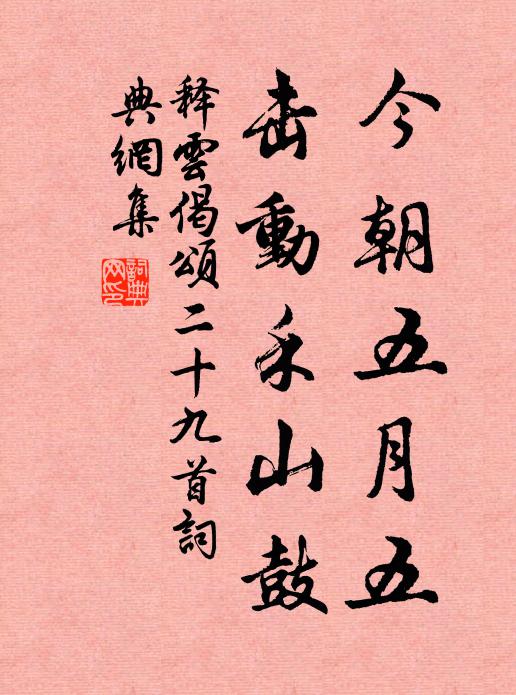 今朝五月五
击動禾山鼓
释雲偈頌二十九首詞
典網集
詞典
网印